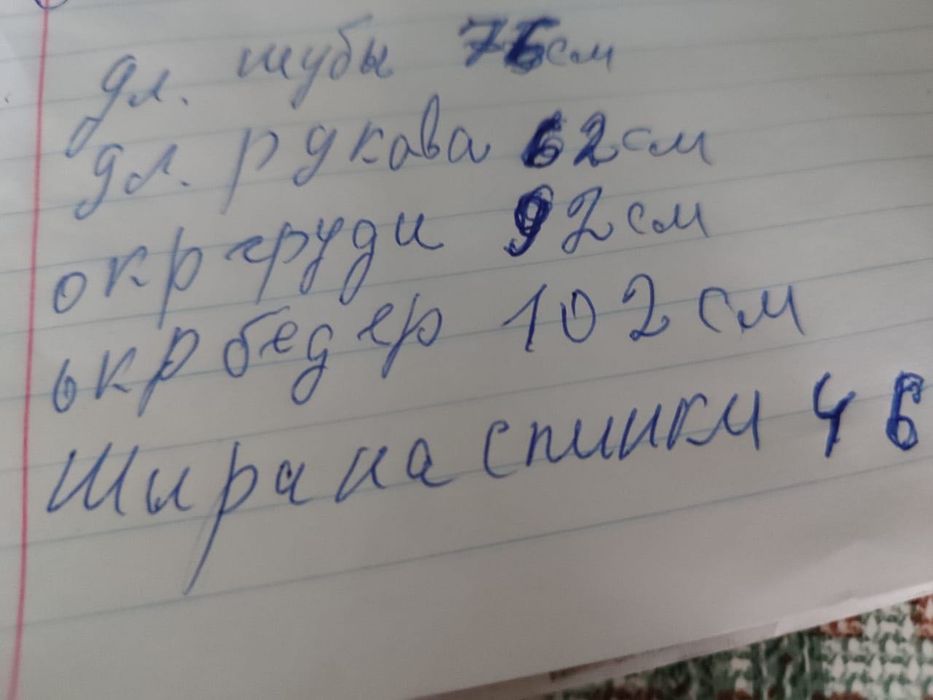 дл. шубы 76см
дл. рукава 62см
окр груди 92см
окр бедер 102см
Ширина спинки 46